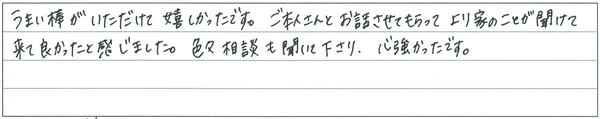 うまい棒がいただけて嬉しかったです。ご本人さんとお話させてもらってより家のことが聞けて
来て良かったと感じました。色々相談も聞いて下さり、心強かったです。